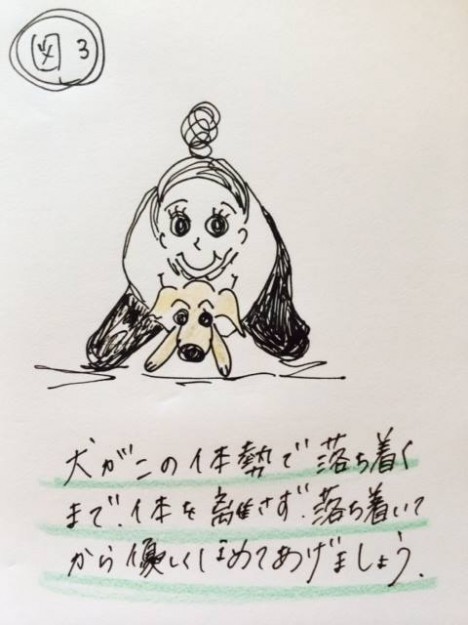 図3
犬がこの体勢で落ち着く
まで、体を離さず、落ち着いて
から優しくほめてあげましょう。